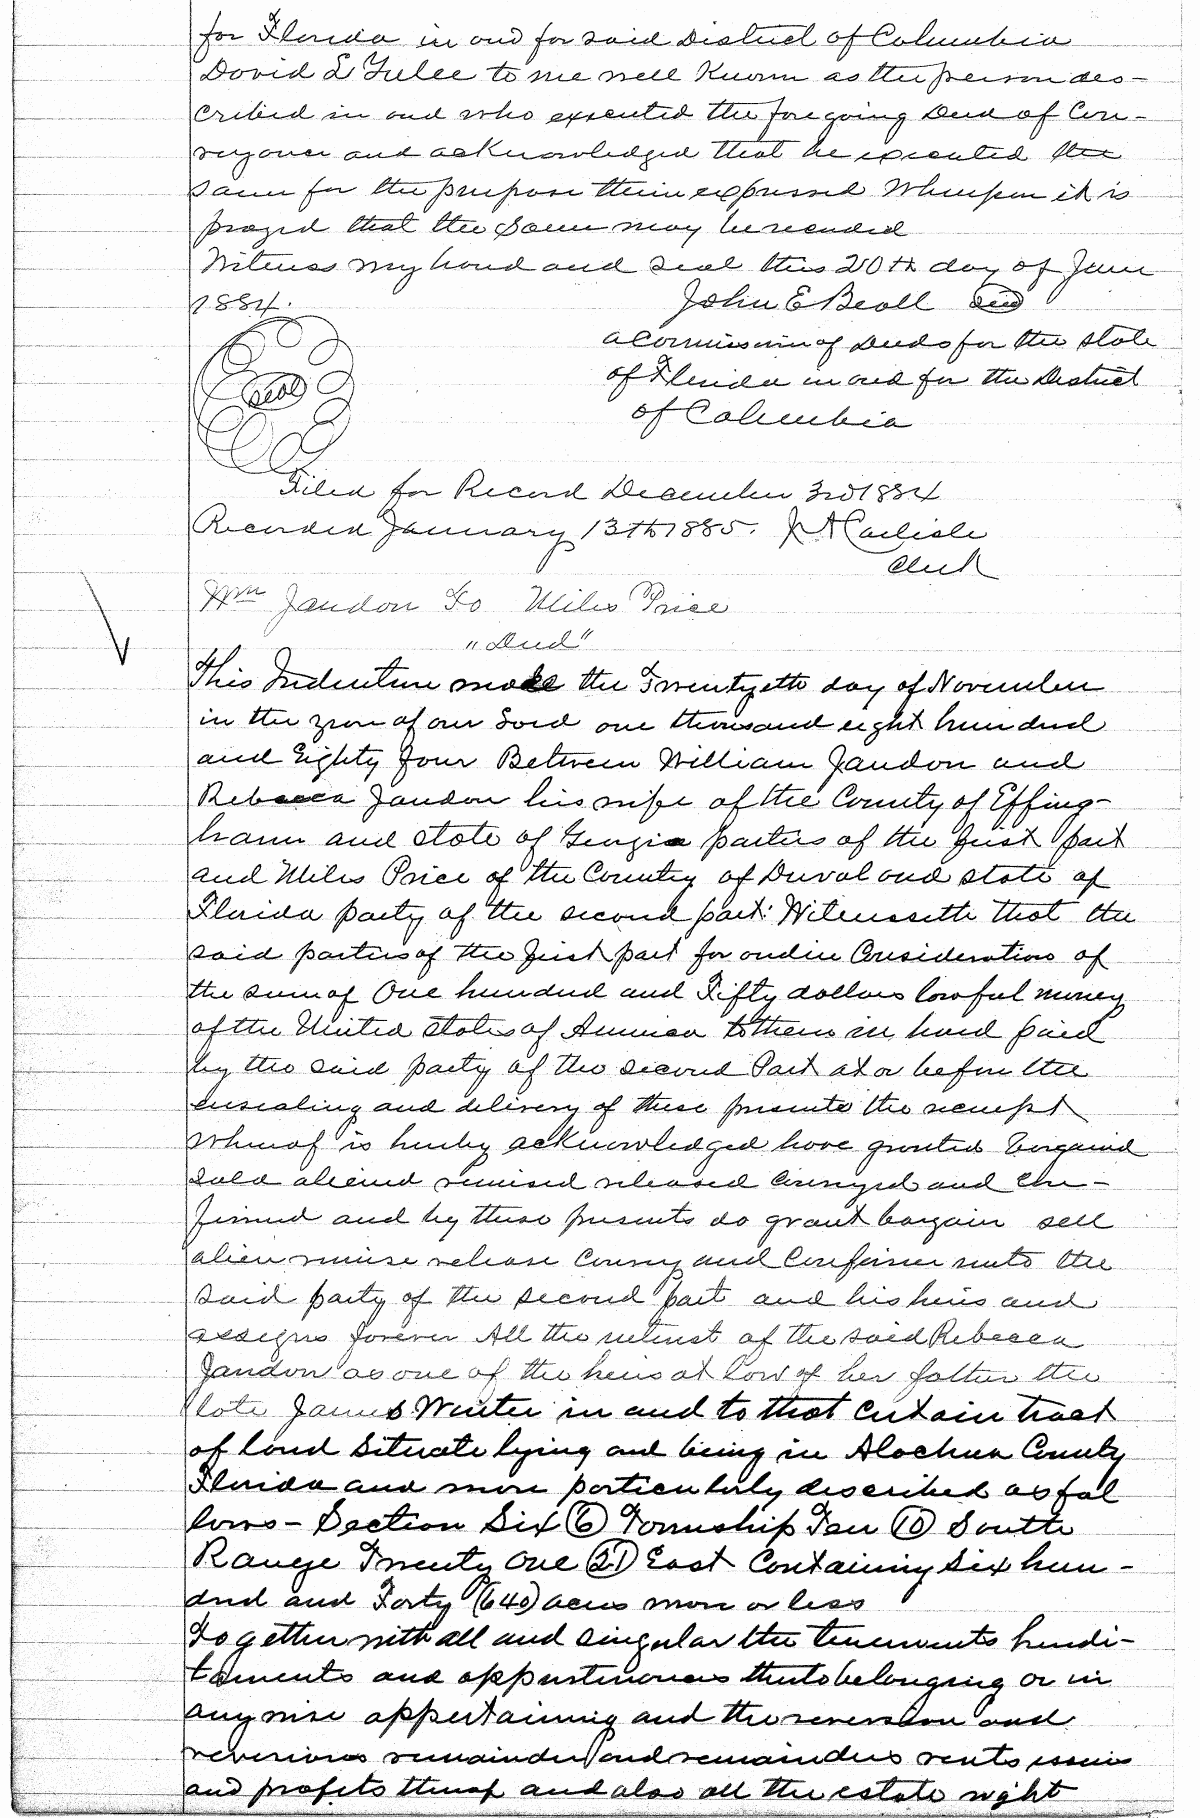 for Florida in and for said District of Columbia
David L Yulee to me well Known as the person des-
cribed in and who executed the foregoing Deed of Con-
veyance and acknowledged that he executed the
same for the purpose therein expressed Whereupon it is
prayed that the same may be recorded
Witness my hand and seal this 20th day of June
1884.
John E Beall Seal
a Commissioner of Deeds for the state
of Florida in and for the District
of Columbia
Seal
Filed for Record December 3rd 1884
Recorded January 13th 1885. J A Carlisle
Clerk
Wm Jaudon To Miles Price
"Deed"
This Indenture made the Twentyeth day of November
in the year of our Lord one thousand eight hundred
and Eighty four Between William Jaudon and
Rebecca Jaudon his wife of the County of Effing-
ham and state of Georgia parties of the first part
and Miles Price of the Country of Duval and state of
Florida party of the second part: Witnesseth that the
said parties of the first part for and in Consideration of
the sum of One hundred and Fifty dollars lawful money
of the United states of America to them in hand paid
by the said party of the second Part at or before the
ensealing and delivery of these presents the receipt
whereof is hereby acknowledged have granted bargained
sold aliened remised released conveyed and Con-
firmed and by these presents do grant bargain sell
alien remise release convey and Confirm unto the
said party of the second part and his heirs and
assigns forever All the interest of the said Rebecca
Jaudon as one of the heirs at law of her father the
late James Winter in and to that certain tract
of land Situate lying and being in Alachua County
Florida and more particularly described as fol
lows - Section Six (6) Township Ten (10) South
Range Twenty One (21) East Containing Six hun-
dred and Forty (640) acres more or less
Together with all and singular the tenements heredi-
taments and appurtenances thereto belonging or in
anywise appertaining and the reversion and
reversions remainder and remainders rents issues
and profits thereof and also all the estate right